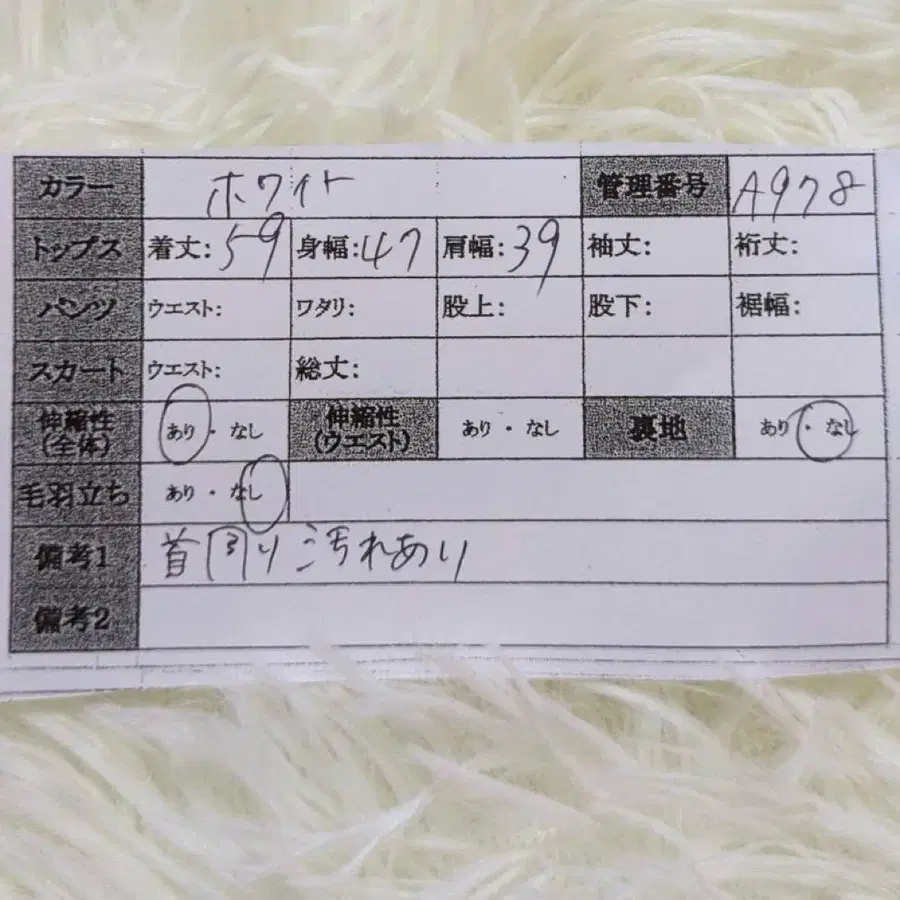 カラー ホワイト 管理番号 A978
トップス 着丈: 59 身幅: 47 肩幅: 39 袖丈: 裄丈:
パンツ ウエスト: ワタリ: 股上: 股下: 裾幅:
スカート ウエスト: 総丈:
伸縮性(全体) あり・なし 伸縮性(ウエスト) あり・なし 裏地 あり・なし
毛羽立ち あり・なし
備考1 首周り汚れあり
備考2